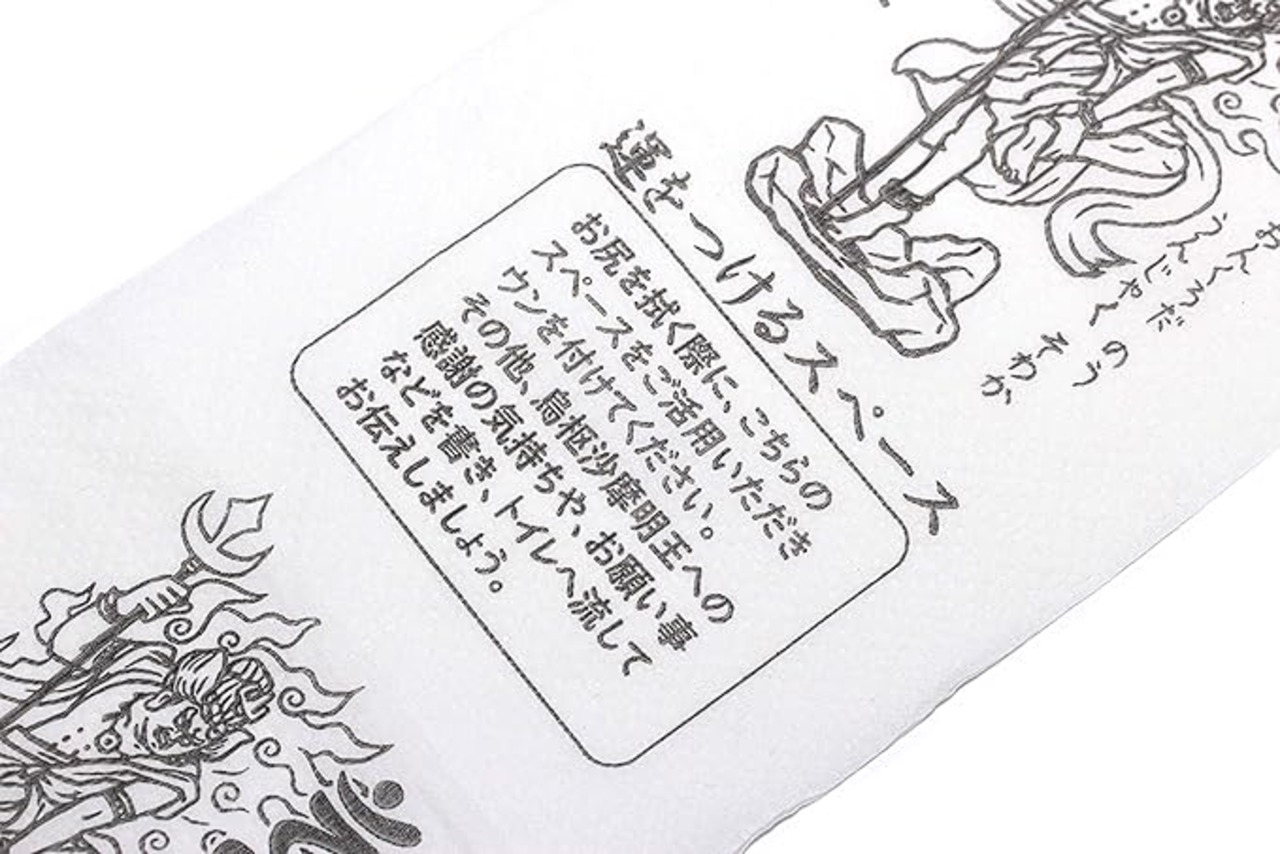 運をつけるスペース
お尻を拭く際に、こちらの
スペースをご活用いただき
ウンを付けてください。
その他、烏枢沙摩明王への
感謝の気持ちや、お願い事
などを書き、トイレへ流して
お伝えしましょう。
おんくろだ
うんじゃくのう
そわか